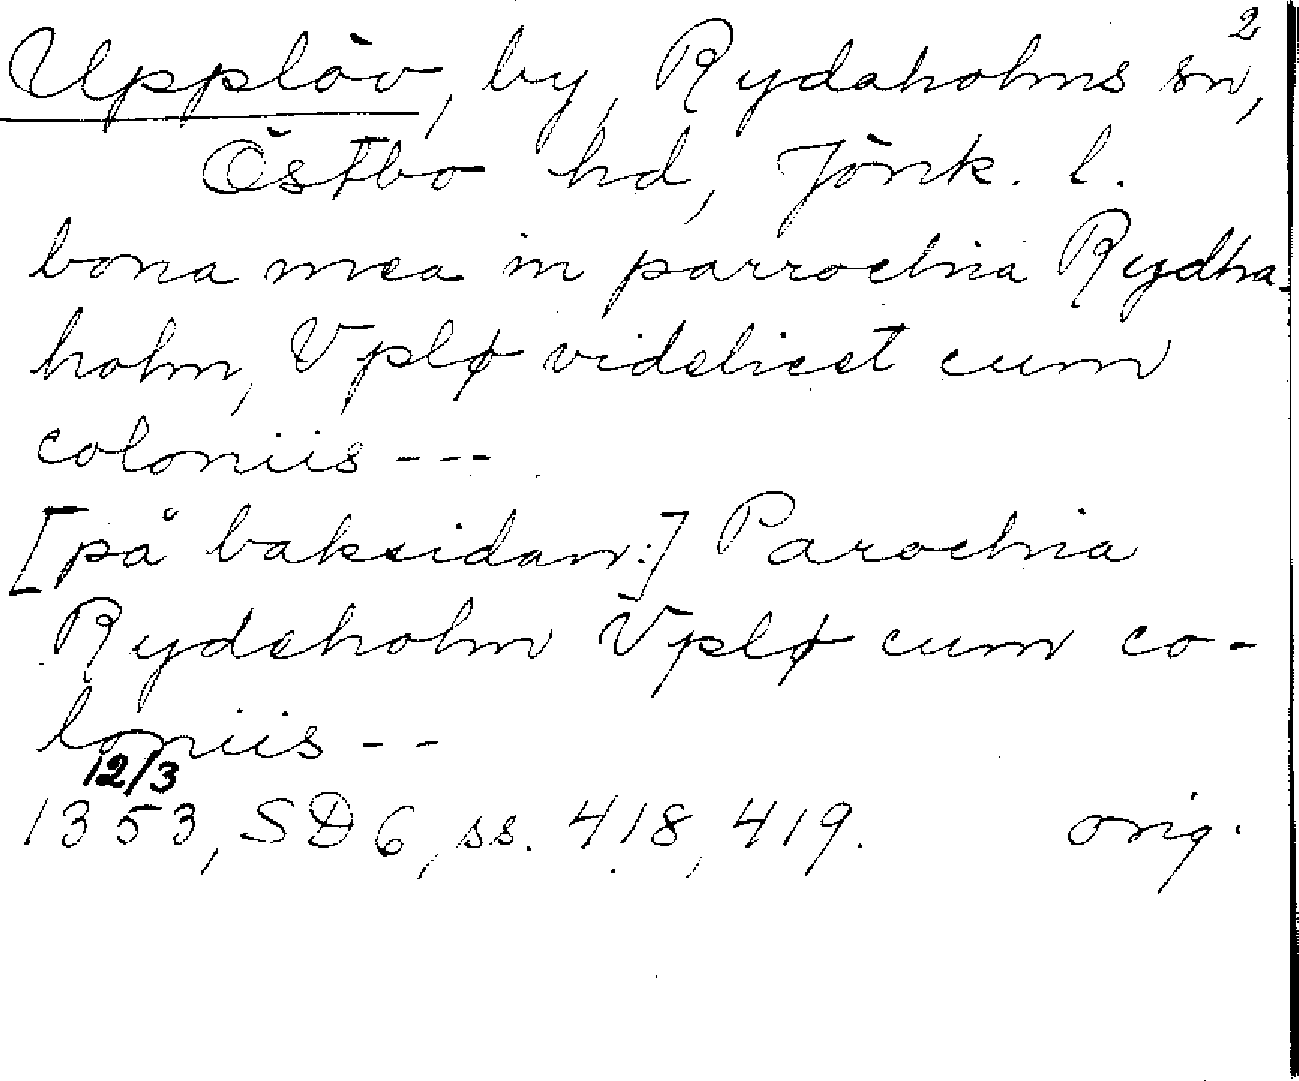 2
Upplöv, by, Rydaholms sn,
Östbo hd, Jönk. l.
bona mea in parrochia Rydha-
holm, Vplø videlicet cum
coloniis ---
[på baksidan:] Parochia
Rydeholm Vplø cum co-
loniis --
12/3
1353, SD 6, ss. 418, 419. orig.